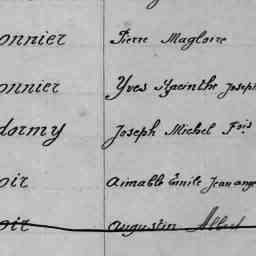 onnier Pierre Magloire
onnier Yves Hyacinthe Joseph
dormy Joseph Michel Fois
oir Aimable Emile Jean ange
oir Augustin Albert